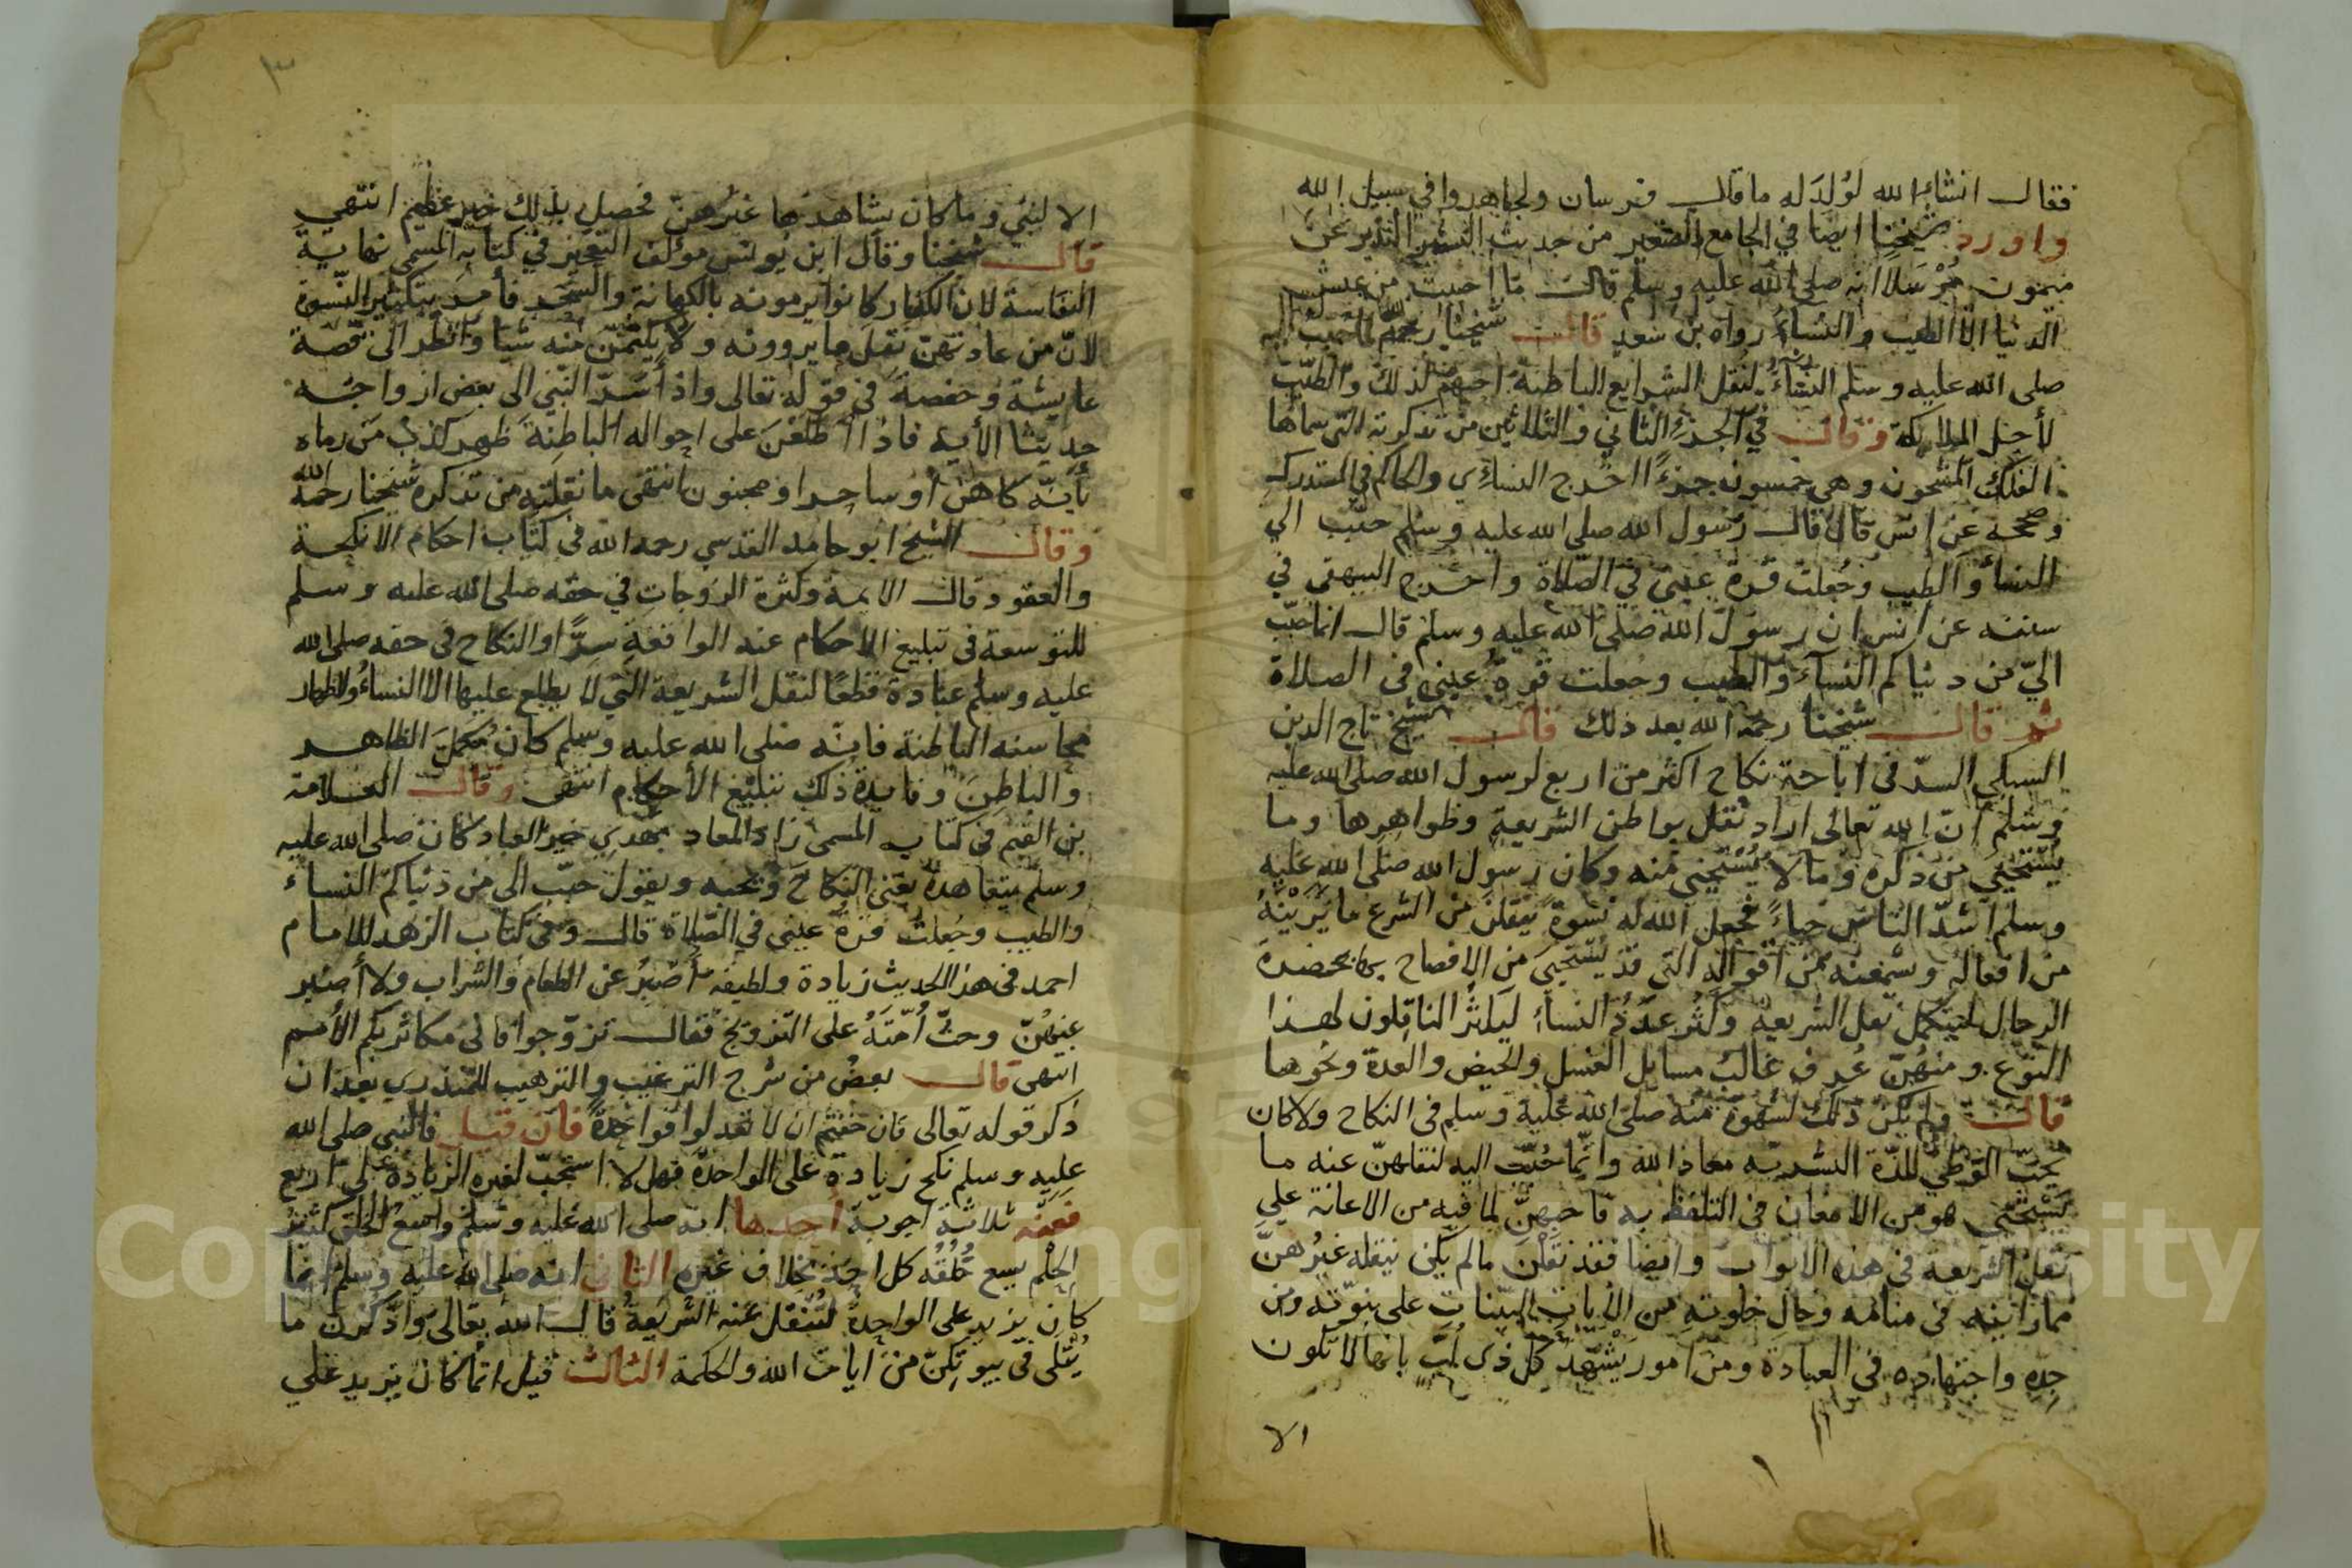 فقال انشاء الله لوُلدَ له ما قال فرسان ولجاهدوا في سبيل الله
واورد شيخنا ايضا في الجامع الصغير من حديث البشير النذير عن
ميمون مُرْسَلا انه صلى الله عليه وسلم قال ما احببت من عيش
الدنيا الا الطيب والنساء رواه بن سعد قال شيخنا رحمه الله لما حبب اليه
صلى الله عليه وسلم النساء لنقل الشرايع الباطنة احبهن لذلك والطيب
لأجل الملايكة وقال في الجزء الثاني والثلاثين من تذكرته التي سماها
الفلك المشحون وهي خمسون جزءًا اخرج النساءي والحاكم في المستدرك
وصححه عن انس قال قال رسول الله صلى الله عليه وسلم حبّب الي
النساء والطيب وجُعلت قرة عيني في الصلاة واخرج البيهقي في
سننه عن انس ان رسول الله صلى الله عليه وسلم قال انما حبّب
اليّ من دنياكم النساء والطيب وجعلت قرة عيني في الصلاة
ثم قال شيخنا رحمه الله بعد ذلك قال الشيخ تاج الدين
السبكي السرّ في اباحة نكاح اكثر من اربع لرسول الله صلى الله عليه
وسلم انّ الله تعالى اراد نقل بواطن الشريعة وظواهرها وما
يُسْتَحْيَى من ذكره وما لا يُسْتَحْيَى منه وكان رسول الله صلى الله عليه
وسلم اشدّ الناس حياءً فجعل الله له نسوةً ينقلن من الشرع ما يَرَيْنَهُ
من افعاله ويسمعنه من اقواله التي قد يُسْتَحْيَى من الافصاح بها بحضرة
الرجال ليتكمل نقل الشريعة وكثُر عددُ النساء ليكثر الناقلون لهذا
النوع ومنهُنّ عُرف غالب مسايل الغسل والحيض والعدة ونحوها
قال ولم يكن ذلك لشهوة منه صلى الله عليه وسلم في النكاح ولا كان
يُحبّ الوطي للذة البشرية معاذ الله وانّما حُبّب اليه لنقلهنّ عنه ما
يَسْتَحْيي هو من الامعان في التلفظ به فاحبهنّ لما فيه من الاعانة على
نقل الشريعة في هذه الابواب وايضا فقد نقلن ما لم يكن ينقله غيرُهنّ
مما رأينه في منامه وحال خلوته من الآيات البينات على نبوّته ومن
جِدِّه واجتهاده في العبادة ومن امور يشهد كلّ ذي لُبّ بانها لا تكون
الا
٣
الا لنبي وما كان يشاهدها غيرُهنّ فحصل بذلك خير عظيم انتهى
قال شيخنا وقال ابن يونس مؤلف التعجيز في كتابه المسمى نهاية
النفاسة لان الكفار كانوا يرمونه بالكهانة والسحر فأمر بتكثير النسوة
لانّ من عادتهن نقل ما يروونه ولا يكتمن منه شيًا وانظر الى قصة
عايشة وحفصة في قوله تعالى واذ أسَرّ النبي الى بعض ازواجه
حديثا الأية فاذا اطلعْنَ على احواله الباطنة ظهر كذب من رماه
بأنّه كاهن أو ساحر او مجنون انتهى ما نقلته من تذكرة شيخنا رحمه الله
وقال الشيخ ابو حامد القدسي رحمه الله في كتاب احكام الانكحة
والعقود قال الايمة وكثرة الزوجات في حقه صلى الله عليه وسلم
للتوسعة في تبليغ الاحكام عنه الواقعة سِرًّا والنكاح في حقه صلى الله
عليه وسلم عبادة قطعًا لنقل الشريعة التي لا يطلع عليها الا النساءُ ولاظهار
محاسنه الباطنة فانّه صلى الله عليه وسلم كان مُكمّلَ الظاهر
والباطن وفايدة ذلك تبليغ الأحكام انتهى وقال العلامة
بن القيم في كتابه المسمى زاد المعاد بهدي خير العباد كان صلى الله عليه
وسلم يتعاهدهُ يعني النكاحَ ويحبه ويقول حبّب الي من دنياكم النساء
والطيب وجُعلت قرةُ عيني في الصلاة قال وفي كتاب الزهد للامام
احمد في هذا الحديث زيادة ولطيفة أصْبِرُ عن الطعام والشراب ولا أصبر
عنهُنّ وحثّ أُمّتَهُ على التزويج فقال تزوّجوا فاني مكاثر بكم الأمم
انتهى قال بعضُ من شرح الترغيب والترهيب للمنذري بعد ان
ذكر قوله تعالى فان خفتم ان لا تعدلوا فواحدة فان قيل فالنبي صلى الله
عليه وسلم نكح زيادة على الواحدة فهل لا استحبّ لغيره الزيادة على اربع
فعنه ثلاثة اجوبة احدها انه صلى الله عليه وسلم واسعُ الخلق كثيرُ
الحلم يسع خُلُقُه كل احد بخلاف غيره الثاني انه صلى الله عليه وسلم انما
كان يزيد على الواحدة لتُنْقل عنه الشريعةُ قال الله تعالى واذكرن ما
يُتْلى في بيوتكنّ من ايات الله والحكمة الثالث قيل انما كان يزيد على
Copyright © King Saud University